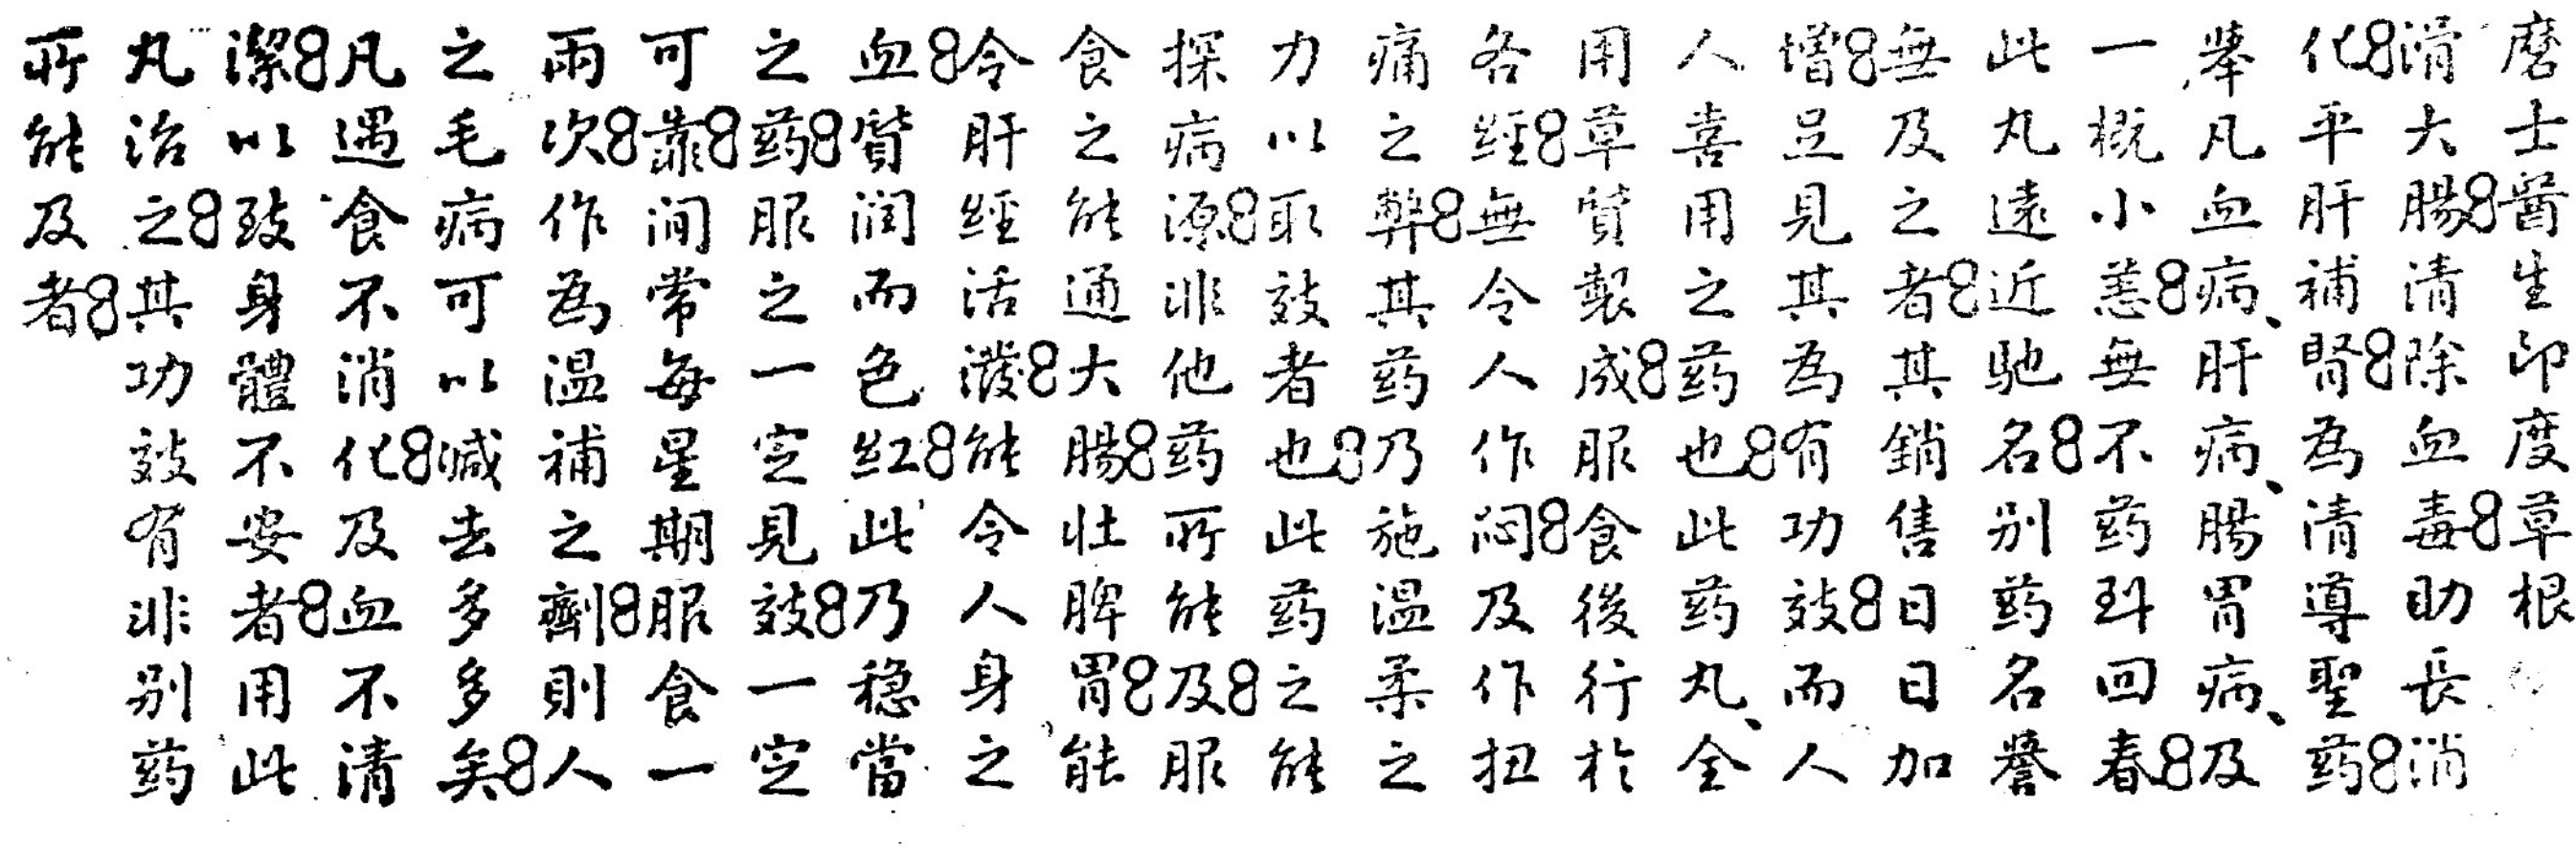 磨士醫生印度草根
滑大腸。清除血毒。助長消
化。平肝補腎。為清導聖药。
舉凡血病、肝病、腸胃病、及
一概小恙。無不药到回春。
此丸遠近馳名。别药名誉
無及之者。其銷售日日加
增。足見其為有功效。而人
人喜用之药也。此药丸、全
用草質製成。服食後行於
各經。無令人作悶。及作扭
痛之弊。其药乃施温柔之
力以取效者也。此药之能
探病源。非他药所能及。服
食之能通大腸。壯脾胃。能
令肝經活潑。能令人身之
血質潤而色紅。此乃穏當
之药。服之一定見效。一定
可靠。间常每星期服食一
兩次。作為温補之劑。則人
之毛病可以减去多多矣。
凡遇食不消化。及血不清
潔。以致身體不安者。用此
丸治之。其功效有非别药
所能及者。